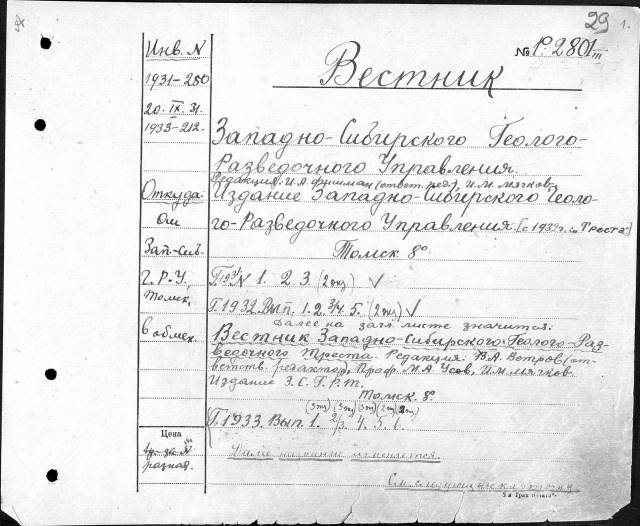 29 1.
№ Р. 2801 III
Вестник
Инв. N
1931-250
20. IX. 31.
1933-212.
Западно-Сибирского Геолого-
Разведочного Управления.
Редакция: И.А. Фишман (ответ. ред), И.М. Мягков.
Откуда:
Издание Западно-Сибирского Геоло-
Ом
го-Разведочного Управления. [с 1932г. „Треста"]
Зап-Сиб.
Томск 8°
Г. Р. У.
Г. 1931 N 1. 2. 3. (2 экз) V
Томск,
Г. 1932. Вып. 1. 2. 3/4. 5. (2 экз) V
Далее на загл. листе значится:
в обмен.
Вестник Западно-Сибирского Геолого-Раз-
ведочного Треста. Редакция: В.А. Ветров (от-
ветств. редактор), Проф. М.А. Усов, И.М. Мягков.
Издание З. С. Г. Р. Т.
Томск 8°.
(3 экз) (3 экз) (3 экз) (2 экз) (2 экз)
Г. 1933. Вып. 1. 2/3. 4. 5. 6.
Цена
разная.
Далее название изменяется.
См. следующую карточку